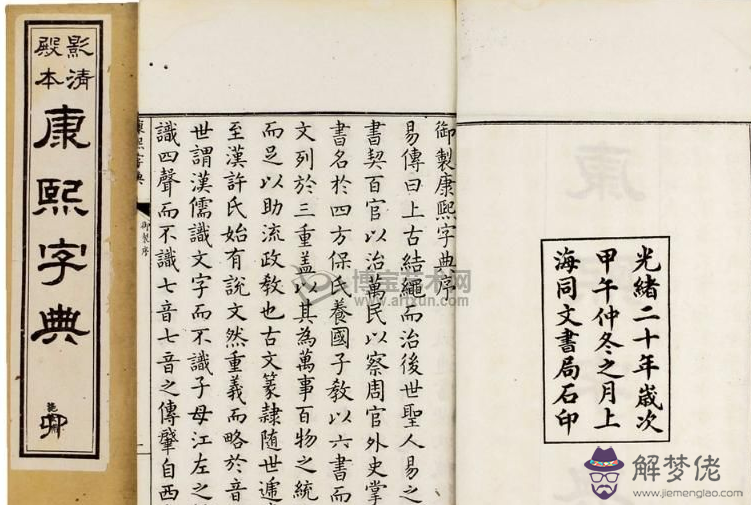 影清
殿本
康熙字典
光緒二十年歲次
甲午仲冬之月上
海同文書局石印
御製康熙字典序
易傳曰上古結繩而治後世聖人易之
書契百官以治萬民以察周官外史掌
書名於四方保氏養國子敎以六書而
文列於三重蓋以其為萬事百物之統
而足以助流政敎也古文篆隸隨世遞
至漢許氏始有說文然重義而略於音
世謂漢儒識文字而不識子母江左之
識四聲而不識七音七音之傳肇自西
康熙字典 御製序
博宝艺术网
www.artxun.com
解梦佬
www.jiemenglao.com